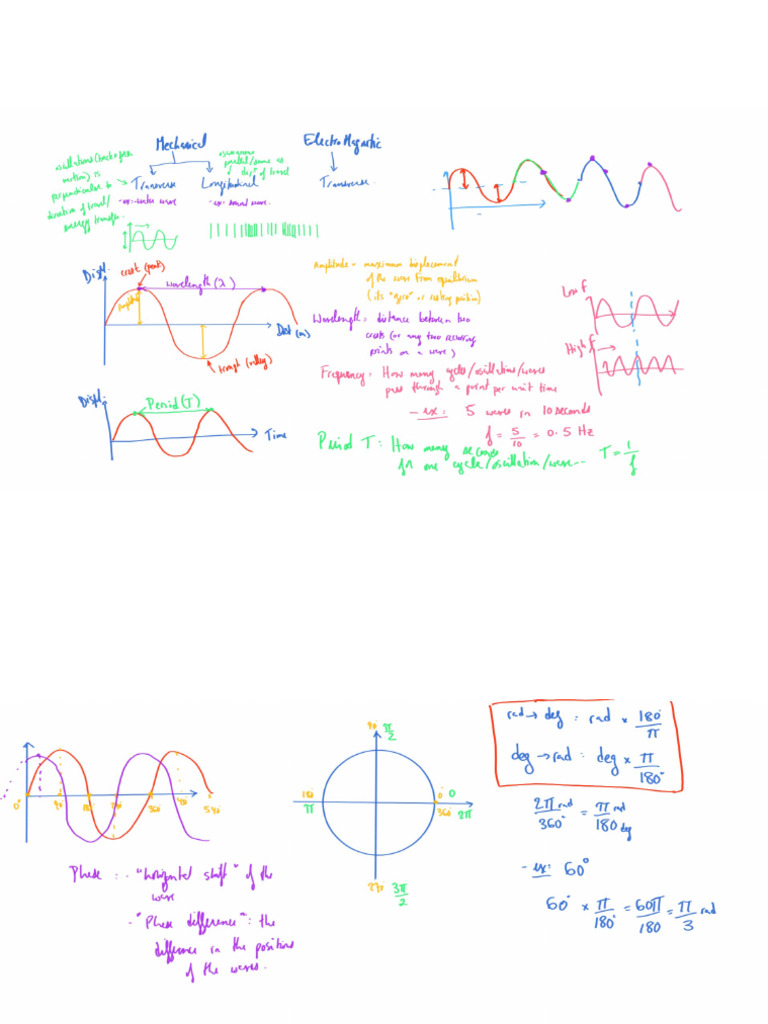 Mechanical
ElectroMagnetic
oscillations (
motion) is
perpendicular to
direction of travel/
energy transfer.
oscillations
parallel/same as
dirⁿ of travel
Transverse
Longitudinal
Transverse.
-ex: water wave
-ex: sound wave.
Displ.
crest (peak)
wavelength (λ)
Amplitude
Dist (m)
trough (valley)
Amplitude = maximum displacement
of the wave from equilibrium
(its "zero" or resting position)
Wavelength = distance between two
crests (or any two recurring
points on a wave)
Frequency: How many cycles/oscillations/waves
pass through a point per unit time
- ex: 5 waves in 10 seconds
f = 5/10 = 0.5 Hz
Low f
High f
Displ.
Period (T)
Time
Period T: How many seconds
for one cycle/oscillation/wave...
T = 1/f
0°
90
180
270
360
540
Phase: - "horizontal shift" of the
wave
- "Phase difference": the
difference in the positions
of the waves.
90 π/2
180
π
0° 0
360 2π
270 3π/2
rad → deg : rad × 180°/π
deg → rad : deg × π/180°
2π rad/360° = π rad/180 deg
- ex: 60°
60° × π/180° = 60π/180 = π/3 rad